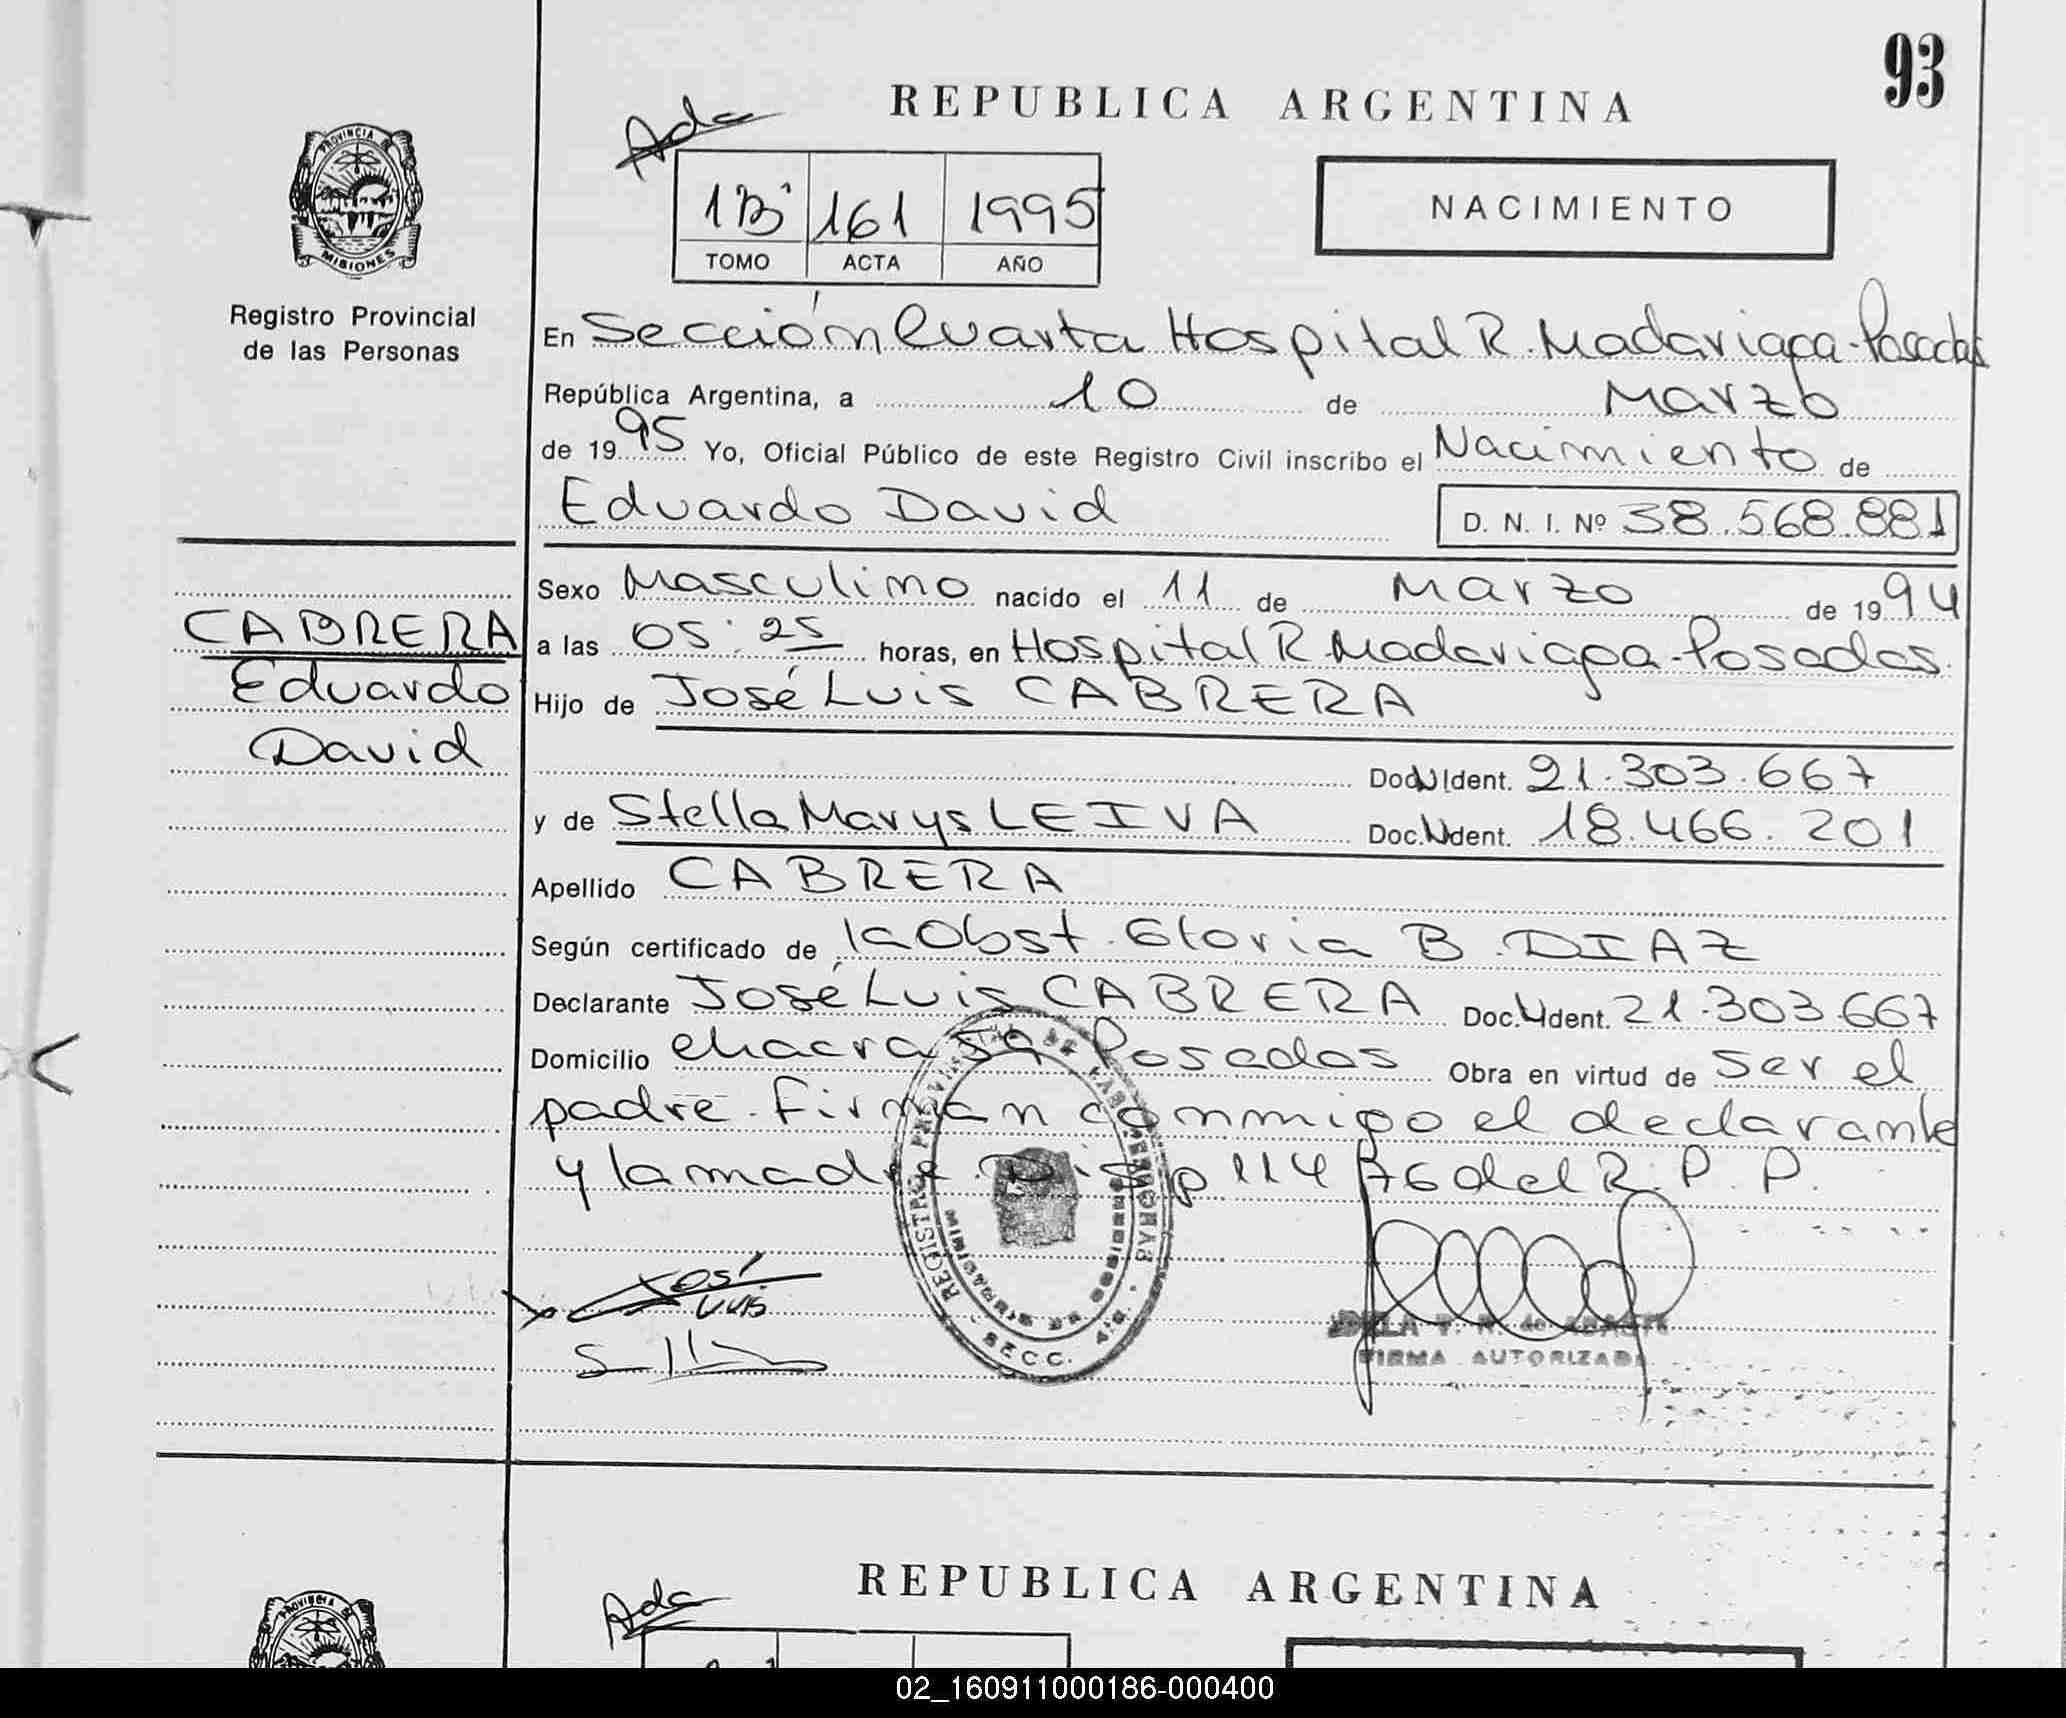 93
REPUBLICA ARGENTINA
Ada
PROVINCIA DE
MISIONES
1B' 161 1995
TOMO ACTA AÑO
NACIMIENTO
Registro Provincial
de las Personas
En Sección Cuarta Hospital R. Madariaga - Posadas
República Argentina, a 10 de Marzo
de 1995 Yo, Oficial Público de este Registro Civil inscribo el Nacimiento de
Eduardo David D. N. I. Nº 38.568.881
CABRERA
Eduardo
David
Sexo Masculino nacido el 11 de Marzo de 1994
a las 05:25 horas, en Hospital R. Madariaga - Posadas.
Hijo de José Luis CABRERA
Doc. Ident. 21.303.667
y de Stella Marys LEIVA Doc. Ident. 18.466.201
Apellido CABRERA
Según certificado de la Obst. Gloria B. DIAZ
Declarante José Luis CABRERA Doc. Ident. 21.303.667
Domicilio chacra Posadas Obra en virtud de ser el
padre. Firman conmigo el declarante
y la madre. Disp 114/76 del R. P. P.
REGISTRO PROVINCIAL DE LAS PERSONAS
SECC.
José
Luis
FIRMA AUTORIZADA
REPUBLICA ARGENTINA
Ada
PROVINCIA DE
02_160911000186-000400